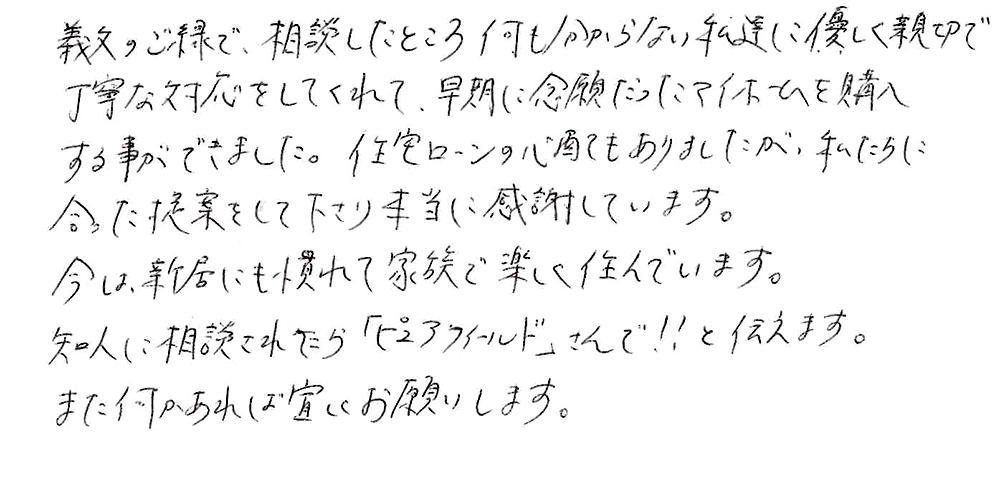 義父のご縁で、相談したところ何もわからない私達に優しく親切で
丁寧な対応をしてくれて、早期に念願だったマイホームを購入
する事ができました。住宅ローンの心配でもありましたが、私たちに
合った提案をして下さり本当に感謝しています。
今は、新居にも慣れて家族で楽しく住んでいます。
知人に相談されたら「ピュアフィールド」さんで!!と伝えます。
また何かあれば宜しくお願いします。